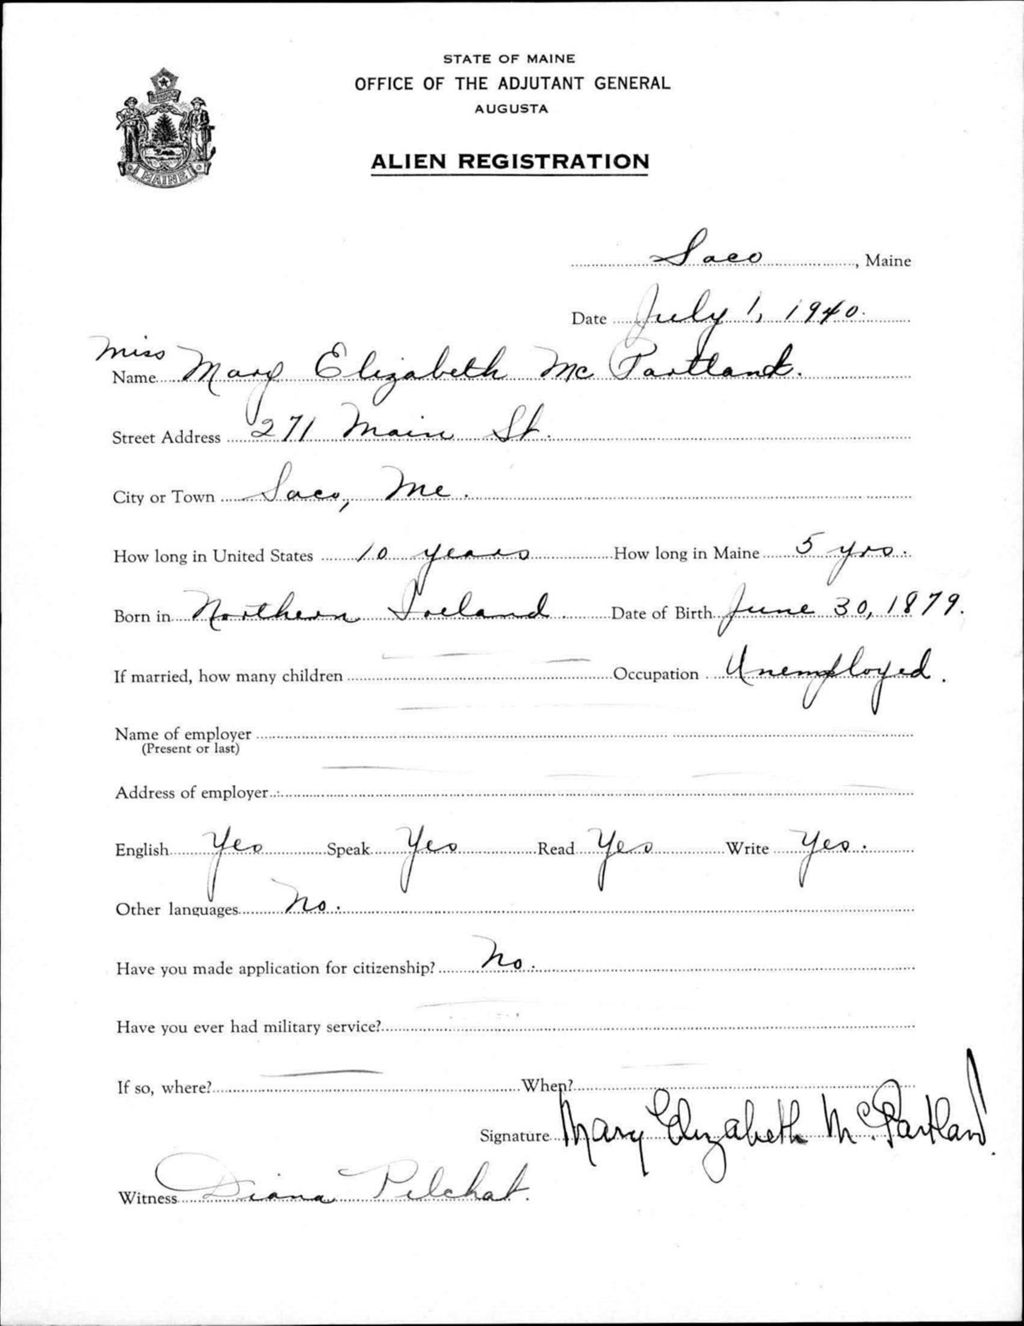 STATE OF MAINE
OFFICE OF THE ADJUTANT GENERAL
AUGUSTA
ALIEN REGISTRATION
MAINE
Saco, Maine
Date July 1, 1940.
Miss
Name Mary Elizabeth Mc Partland.
Street Address 271 Main St.
City or Town Saco, Me.
How long in United States 10 years How long in Maine 5 yrs.
Born in Northern Ireland Date of Birth June 30, 1879.
If married, how many children — — Occupation Unemployed.
Name of employer
(Present or last)
Address of employer
English Yes Speak Yes Read Yes Write Yes.
Other languages No.
Have you made application for citizenship? No.
Have you ever had military service?
If so, where? When?
Signature Mary Elizabeth McPartland.
Witness Diana Pilchat.